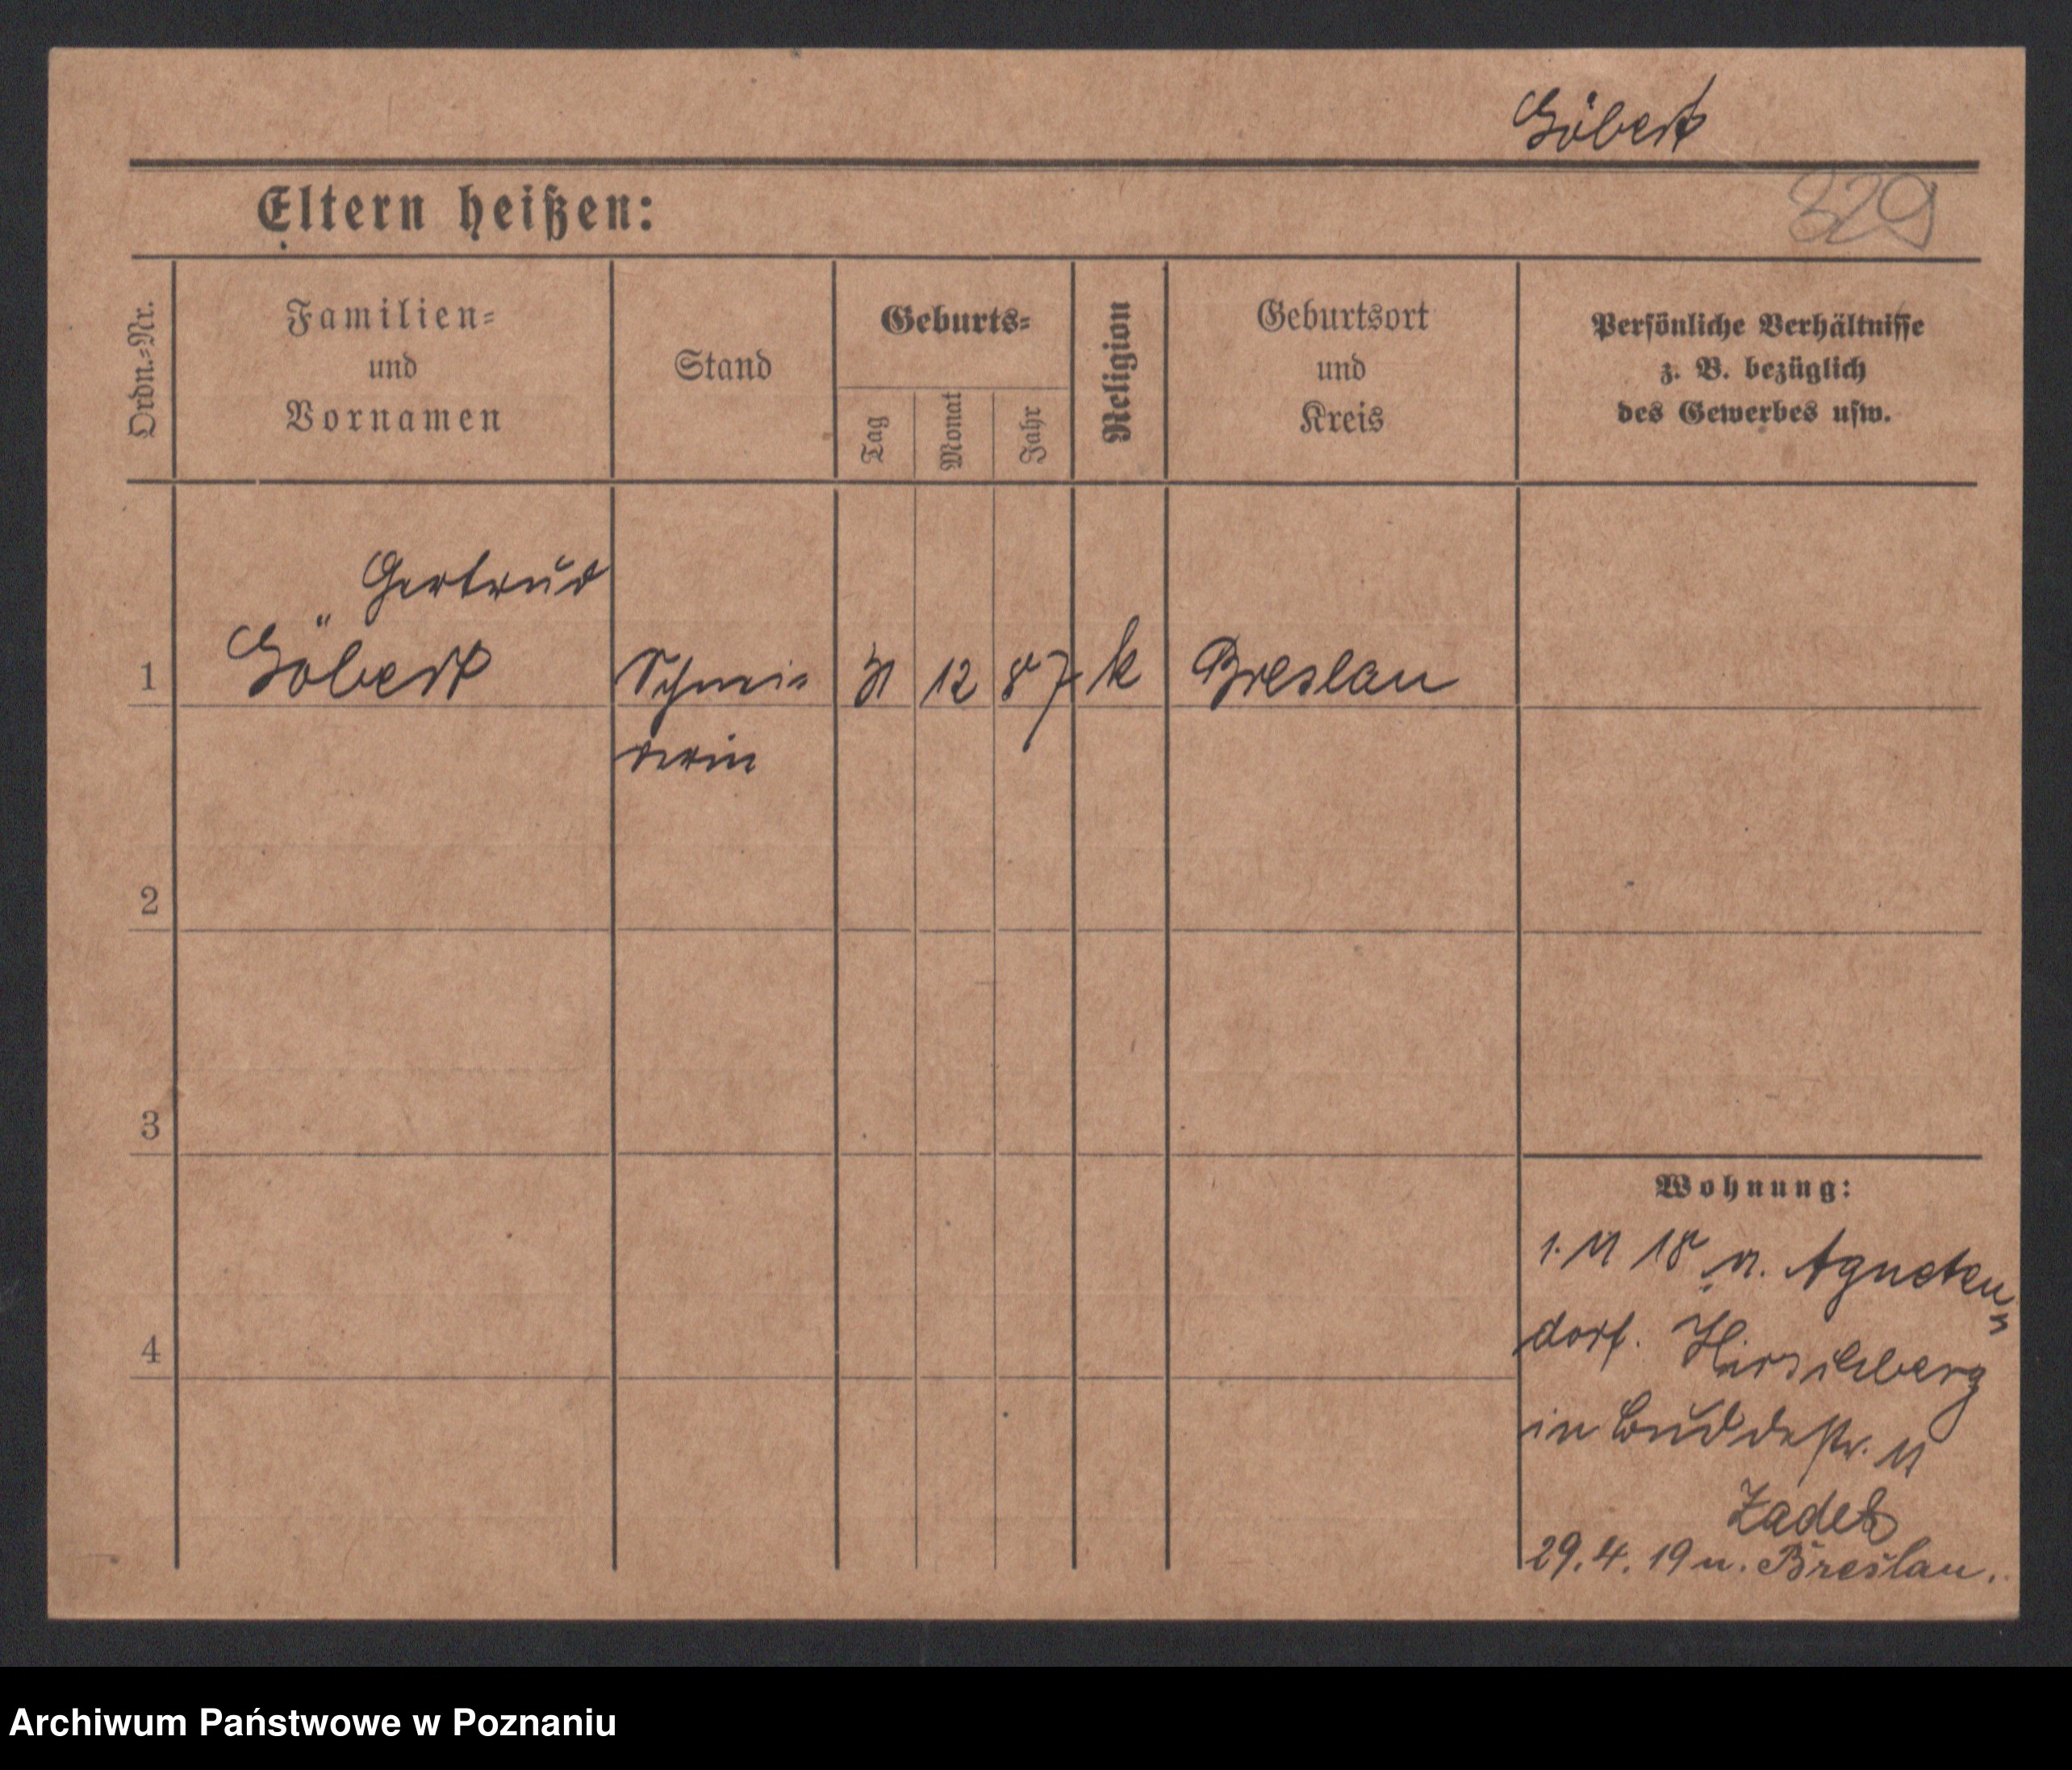 Göbert
329
Eltern heißen:
Ordn.-Nr.
Familien-
und
Vornamen
Stand
Geburts-
Tag
Monat
Jahr
Religion
Geburtsort
und
Kreis
Persönliche Verhältnisse
z. B. bezüglich
des Gewerbes usw.
Gertrud
1 Göbert Schnei- 31 12 87 k Breslau
derin
2
3
4
Wohnung:
1. 11 18 n. Agneten-
dorf. Hirschberg
in Buddestr. 11
Zadek
29.4.19 n. Breslau.
Archiwum Państwowe w Poznaniu